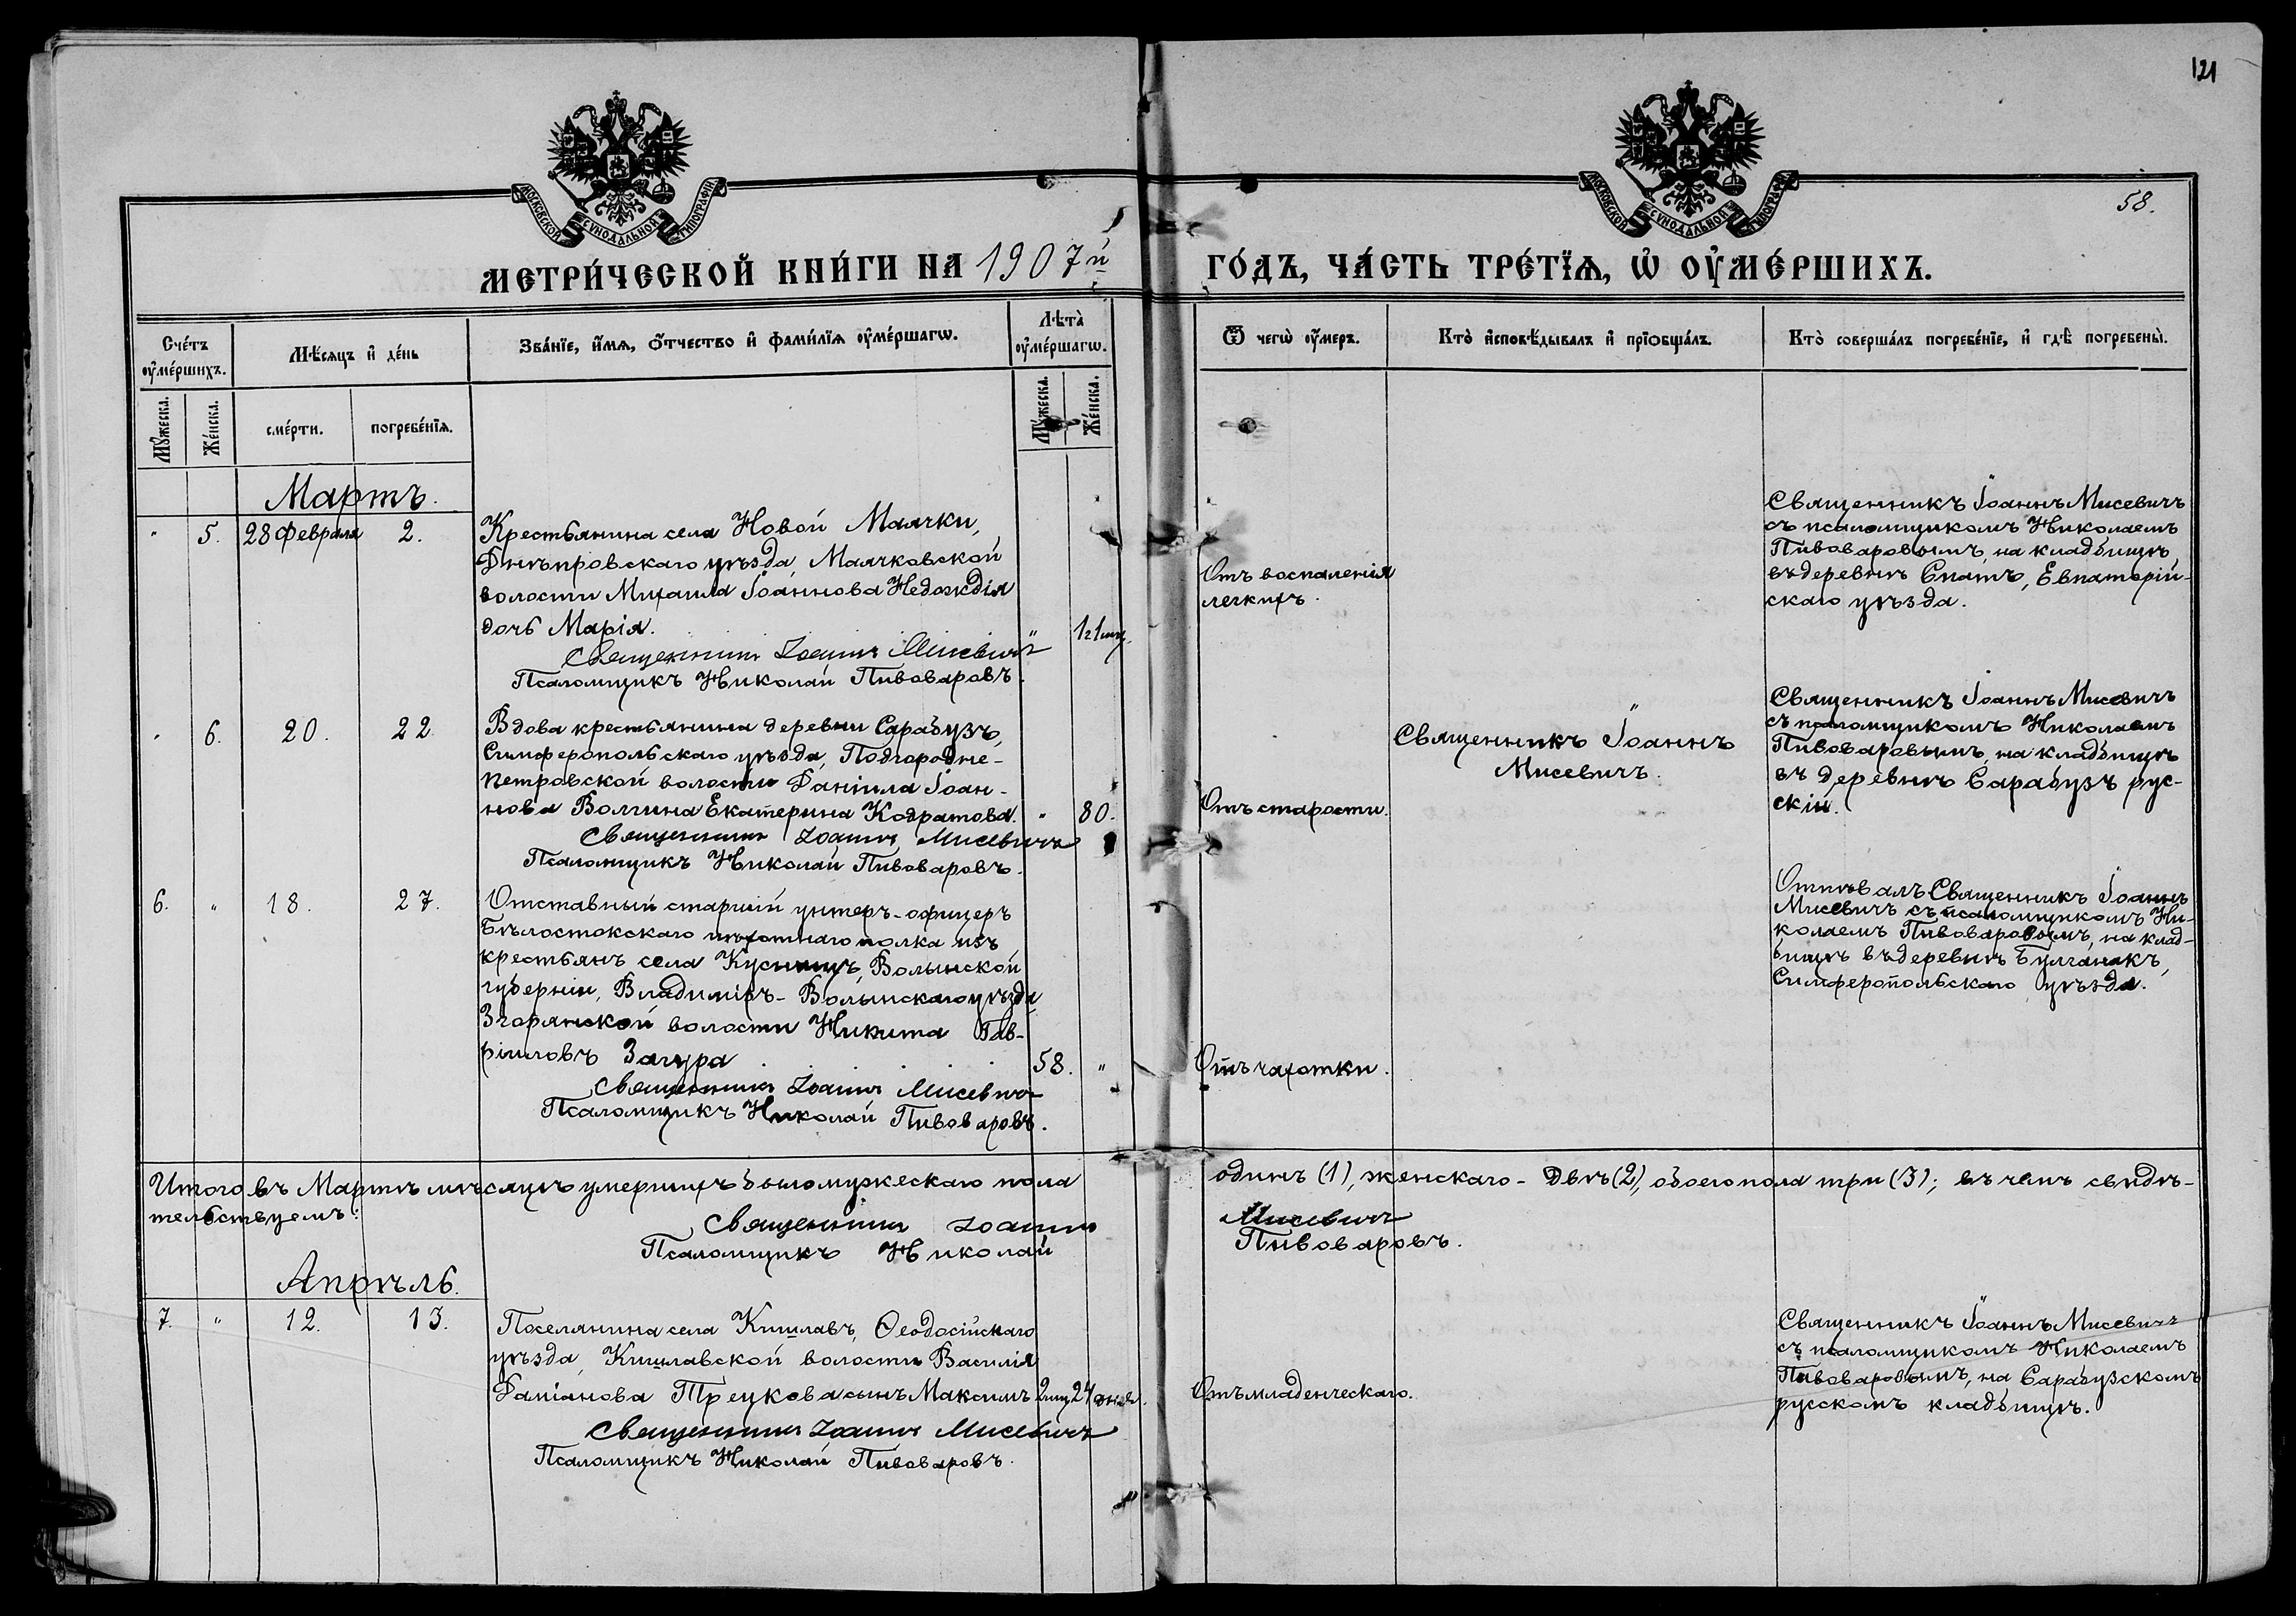 121
58.
МОСКОВСКОЙ СѴНОДАЛЬНОЙ ТИПОГРАФІИ
МОСКОВСКОЙ СѴНОДАЛЬНОЙ ТИПОГРАФІИ
МЕТРИ́ЧЕСКОЙ КНИ́ГИ НА 1907й ГО́ДЪ, ЧА́СТЬ ТРЕ́ТЇѦ, Ѡ҆ ОУ҆МЕ́РШИХЪ.
Сче́тъ оу҆ме́ршихъ.
Мѣ́сѧцъ и҆ де́нь
Зва́нїе, и҆́мѧ, ѻ҆́тчество и҆ фами́лїѧ оу҆ме́ршагѡ.
Лѣта̀ оу҆ме́ршагѡ.
Ѿ чегѡ̀ оу҆́меръ.
Кто̀ и҆сповѣ́дывалъ и҆ прїѡбща́лъ.
Кто̀ соверша́лъ погребе́нїе, и҆ гдѣ̀ погребены̀.
Мꙋ́жеска.
Же́нска.
сме́рти.
погребе́нїѧ.
Мꙋ́жеска.
Же́нска.
Мартъ.
" 5. 28 февраля 2.
Крестьянина села Новой Маячки,
Днѣпровскаго уѣзда, Маячковской
волости Михаила Іоаннова Недождія
дочь Марія. " 1г.1мц.
Священникъ Іоаннъ Мисевичъ
Псаломщикъ Николай Пивоваровъ.
Отъ воспаленія
легкихъ.
Священникъ Іоаннъ Мисевичъ
съ псаломщикомъ Николаемъ
Пивоваровымъ, на кладбищѣ
въ деревнѣ Спатъ, Евпаторій-
скаго уѣзда.
" 6. 20. 22.
Вдова крестьянина деревни Сарабузъ,
Симферопольскаго уѣзда, Подгородне-
Петровской волости Даніила Іоан-
нова Волгина Екатерина Кодратова. " 80.
Священникъ Іоаннъ Мисевичъ
Псаломщикъ Николай Пивоваровъ.
Отъ старости.
Священникъ Іоаннъ
Мисевичъ.
Священникъ Іоаннъ Мисевичъ
съ псаломщикомъ Николаемъ
Пивоваровымъ, на кладбищѣ
въ деревнѣ Сарабузъ рус-
скій.
6. " 18. 27.
Отставный старшій унтеръ-офицеръ
Бѣлостокскаго пѣхотнаго полка изъ
крестьянъ села Куснищъ, Волынской
губерніи, Владиміръ-Волынскаго уѣзда
Згорянской волости Никита Гав-
ріиловъ Загура 58. "
Священникъ Іоаннъ Мисевичъ
Псаломщикъ Николай Пивоваровъ.
Отъ чахотки.
Отпѣвалъ Священникъ Іоаннъ
Мисевичъ съ псаломщикомъ Ни-
колаемъ Пивоваровымъ, на клад-
бищѣ въ деревнѣ Булганакъ,
Симферопольскаго уѣзда.
Итого въ Мартѣ мѣсяцѣ умершихъ было мужескаго пола один­ъ (1), женскаго - двѣ (2), обоего пола три (3); въ чемъ свидѣ-
тельствуемъ:
Священникъ Іоаннъ Мисевичъ
Псаломщикъ Николай Пивоваровъ.
Апрѣль.
7. " 12. 13.
Поселянина села Кишлавъ, Ѳеодосійскаго
уѣзда, Кишлавской волости Василія
Даміанова Трецкова сынъ Максимъ 2 мц. 24 дней.
Священникъ Іоаннъ Мисевичъ
Псаломщикъ Николай Пивоваровъ.
Отъ младенческаго.
Священникъ Іоаннъ Мисевичъ
съ псаломщикомъ Николаемъ
Пивоваровымъ, на Сарабузскомъ
русскомъ кладбищѣ.